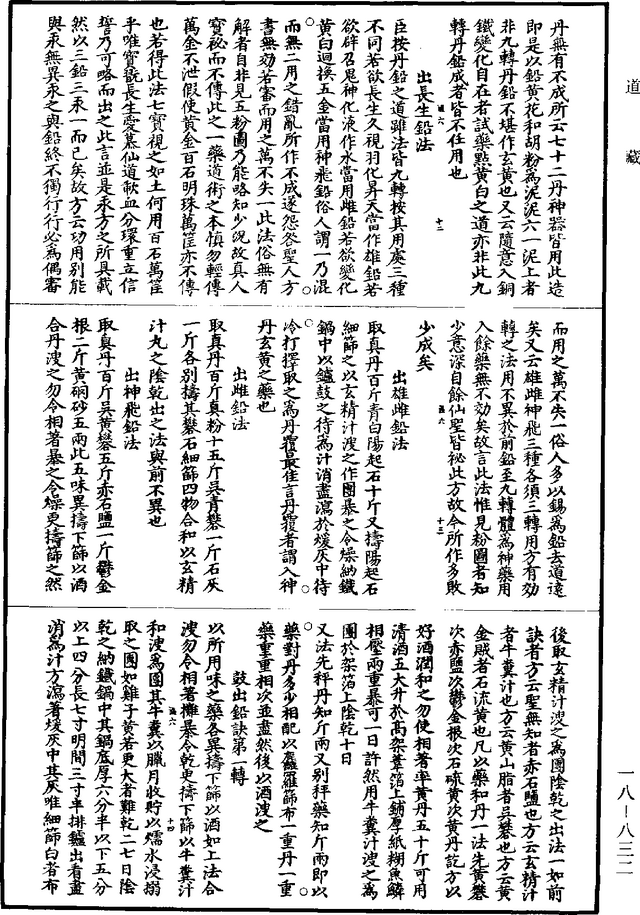 道藏
丹無有不成所云七十二丹神器皆用此造
即是以鉛黃花和胡粉為泥泥六一泥上者
非九轉丹鉛不堪作玄黃也又云隨意入銅
鐵變化自在者試藥點黃白之道亦非此九
轉丹鉛成者皆不任用也
出長生鉛法
臣按丹鉛之道雖法皆九轉按其用處三種
不同若欲長生久視羽化昇天當作雄鉛若
欲辟召鬼神化液作水當用雌鉛若欲變化
黃白迴換五金當用神飛鉛俗人謂一乃混
而無二用之錯亂所作不成遂怨咎聖人方
書無効若審而用之萬不失一此法俗無有
解者自非見五粉圖乃能略知少況故真人
寶祕而不傳此之一藥道術之本慎勿輕傳
萬金不泄假使黃金百石明珠萬筐亦不傳
也若得此法七寶視之如土何用百石萬筐
乎唯寶翫長生愛慕仙道歃血分環重立信
誓乃可略而出之此言並是汞方之所具載
然以三鉛三汞一而已矣故方云功用別能
與汞無異汞之與鉛終不獨行行必為偶審
而用之萬不失一俗人多以錫為鉛去道遠
矣又云雄雌神飛三種各須三轉用方有効
轉之法用不異於前鉛至九轉體為神藥用
入餘藥無不効矣故言此法惟見粉圖者知
少意深自餘仙聖皆祕此方故今所作多敗
少成矣
出雄雌鉛法
取真丹百斤青白陽起石十斤又擣陽起石
細篩之以玄精汁溲之作團暴之令燥納鐵
鍋中以鑪鼓之待為汁消盡瀉於煖灰中待
冷打擇取之為丹覆最佳言丹覆者謂入神
丹玄黃之藥也
出雌鉛法
取真丹百斤真粉十五斤吳青礬一斤石灰
一斤各別擣其礬石細篩四物合和以玄精
汁丸之陰乾出之法與前不異也
出神飛鉛法
取真丹百斤吳黃礬五斤赤石鹽一斤鬱金
根二斤黃硇砂五兩此五味異擣下篩以酒
合丹溲之勿令相著暴之令燥更擣篩之然
後取玄精汁溲之為團陰乾之出法一如前
訣者方云聖無知者赤石鹽也方云玄精汁
者牛糞汁也方云黃山脂者吳礬也方云黃
金賊者石流黃也凡以藥和丹一法先黃礬
次赤鹽次鬱金根次石硫黃次黃丹訖方以
好酒潤和之勿使相著率黃丹五十斤可用
清酒五大升於高架葦箔上鋪厚紙糊魚鱗
相壓兩重暴可一日許然用牛糞汁溲之為
團於架箔上陰乾十日
又法先秤丹知斤兩又別秤藥知斤兩即以
藥對丹多少相配以麤羅篩布一重丹一重
藥重重相次並盡然後以酒溲之
鼓出鉛訣第一轉
以所用味之藥各異擣下篩以酒如上法合
溲勿令相著攤暴令乾更擣下篩以牛糞汁
和溲為團其牛糞以臘月收貯以煗水浸搦
取之團如雞子黃若更大者難乾二七日陰
乾之納鐵鍋中其鍋底厚六分半以下五分
以上四分長七寸明間三寸半排鑪出看盡
消為汁方瀉著煖灰中其灰唯細篩白者布
通六
十二
通六
十三
通六
十四
一八—八三二